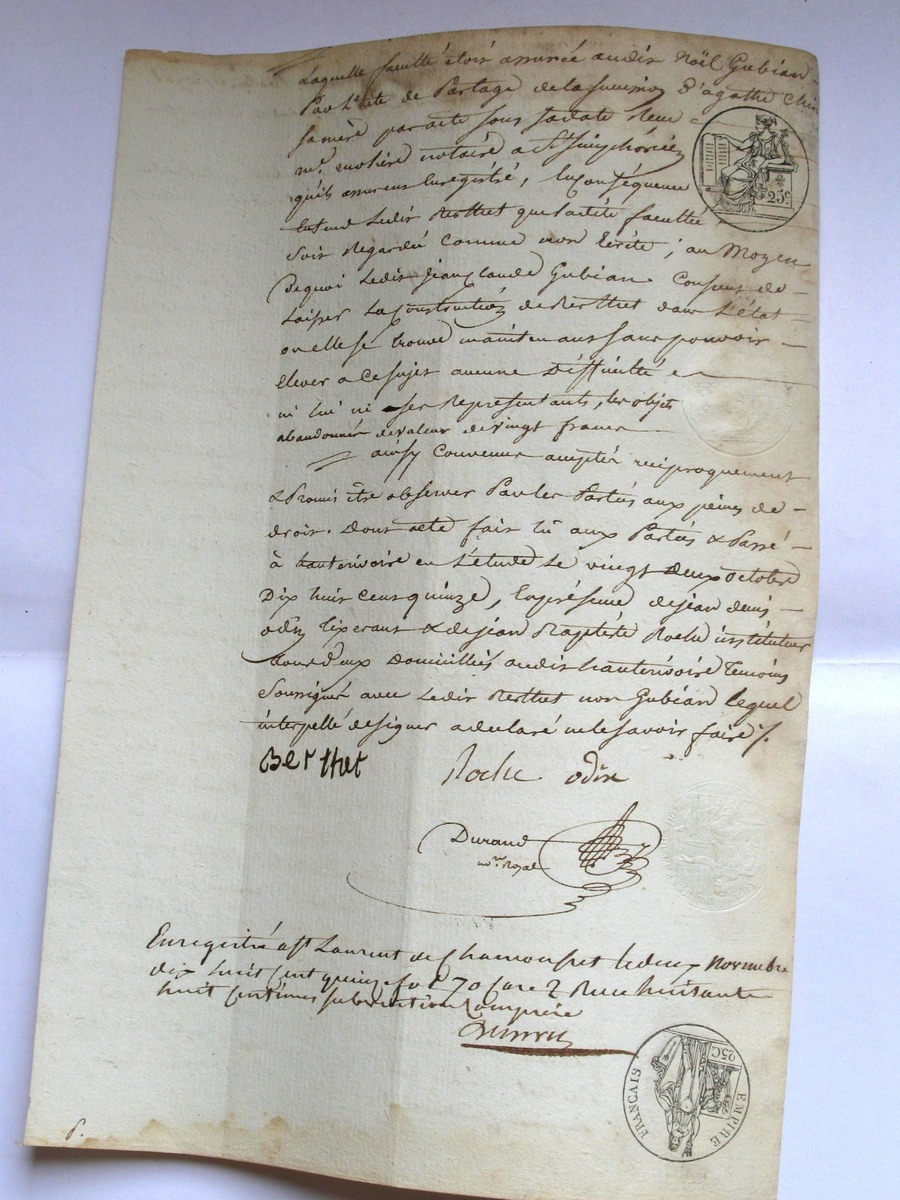 Laquelle faculté étoit assurée audit Noël Gubian
Par L'acte de Partage de la succession d'agathe
sa mère par acte sous sa date Reçu
me notaire a St Simphorien
qu'ils assurent Enregistré, En Conséquence
Entend Ledit Berthet que ladite faculté
Soit Regardée comme non Ecrite ; au Moyen
Dequoi Ledit Jean Claude Gubian Consent de
Laisser La Construction de Berthet dans L'état
ou elle se trouve maintenant sans pouvoir
Elever a Ce sujet aucune Difficulté
ni lui ni ses Représentants, les objets
abandonnés de valeur de vingt francs
ainsy Convenu accepté réciproquement
& Promis être observer Par les Parties aux peines de
droit. Dont acte fait lû aux Parties & Passé
à hauterivoire en L'étude Le vingt Deux octobre
Dix huit cent quinze, En présence de jean denis
odin tixerant & de jean Baptiste Roche instituteur
tous deux Domiciliés audit hauterivoire témoins
Soussignés avec Ledit Berthet non Gubian lequel
interpellé de signer a déclaré ne le savoir faire
Berthet Roche odin
Durand
nore Royal
Enregistré a St Laurent de Chamousset le deux Novembre
dix huit cent quinze fol. 70 Reçu huitante
huit centimes subvention Comprise
25c
EMPIRE FRANCAIS
25C